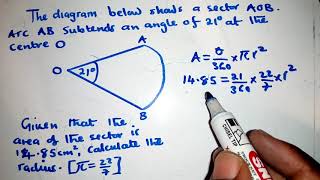 The diagram below shows a sector AOB.
Arc AB subtends an angle of 21° at the
centre O
A
O
21°
B
A = θ/360 × πr²
14.85 = 21/360 × 22/7 × r²
Given that the
area of the sector is
14.85cm², calculate the
radius. [π = 22/7]